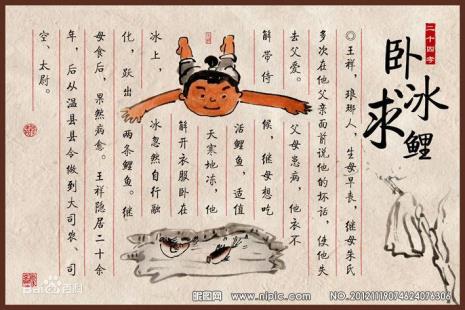 二十四孝
卧冰求鲤
◎王祥，琅琊人，生母早丧，继母朱氏
多次在他父亲面前说他的坏话，使他失
去父爱。父母患病，他衣不
解带侍候，继母想吃
活鲤鱼，适值
天寒地冻，他
解开衣服卧在
冰上冰忽然自行融
化，跃出两条鲤鱼。继
母食后，果然病愈。王祥隐居二十余
年，后从温县县令做到大司农、司
空、太尉。
Bai百科
昵图网 www.nipic.com NO.20121119074624076306